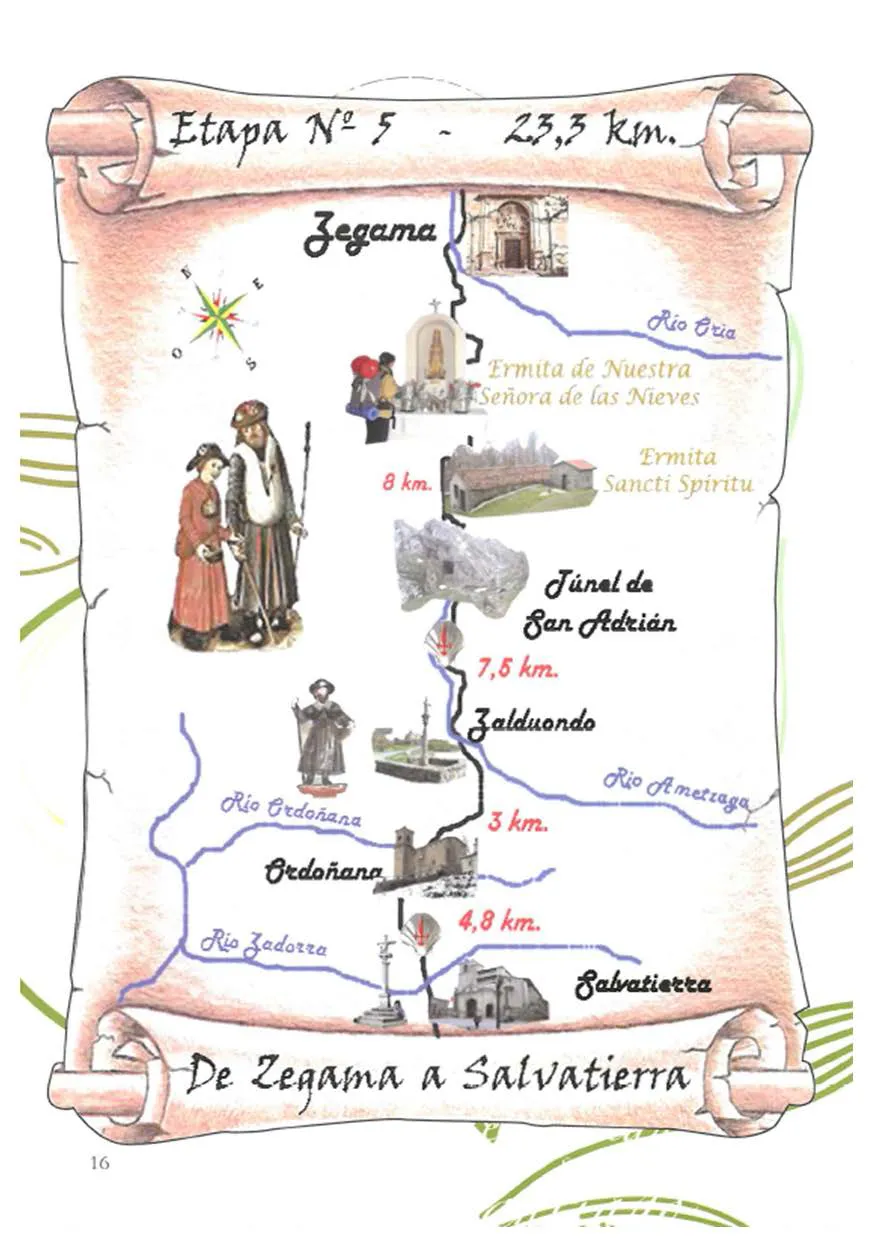 Etapa Nº 5 - 23,3 km.
Zegama
N
E
O
S
Río Oria
Ermita de Nuestra
Señora de las Nieves
Ermita
Sancti Spiritu
8 km.
Túnel de
San Adrián
7,5 km.
Zalduondo
Río Ametzaga
Río Ordoñana
3 km.
Ordoñana
4,8 km.
Río Zadorra
Salvatierra
De Zegama a Salvatierra
16